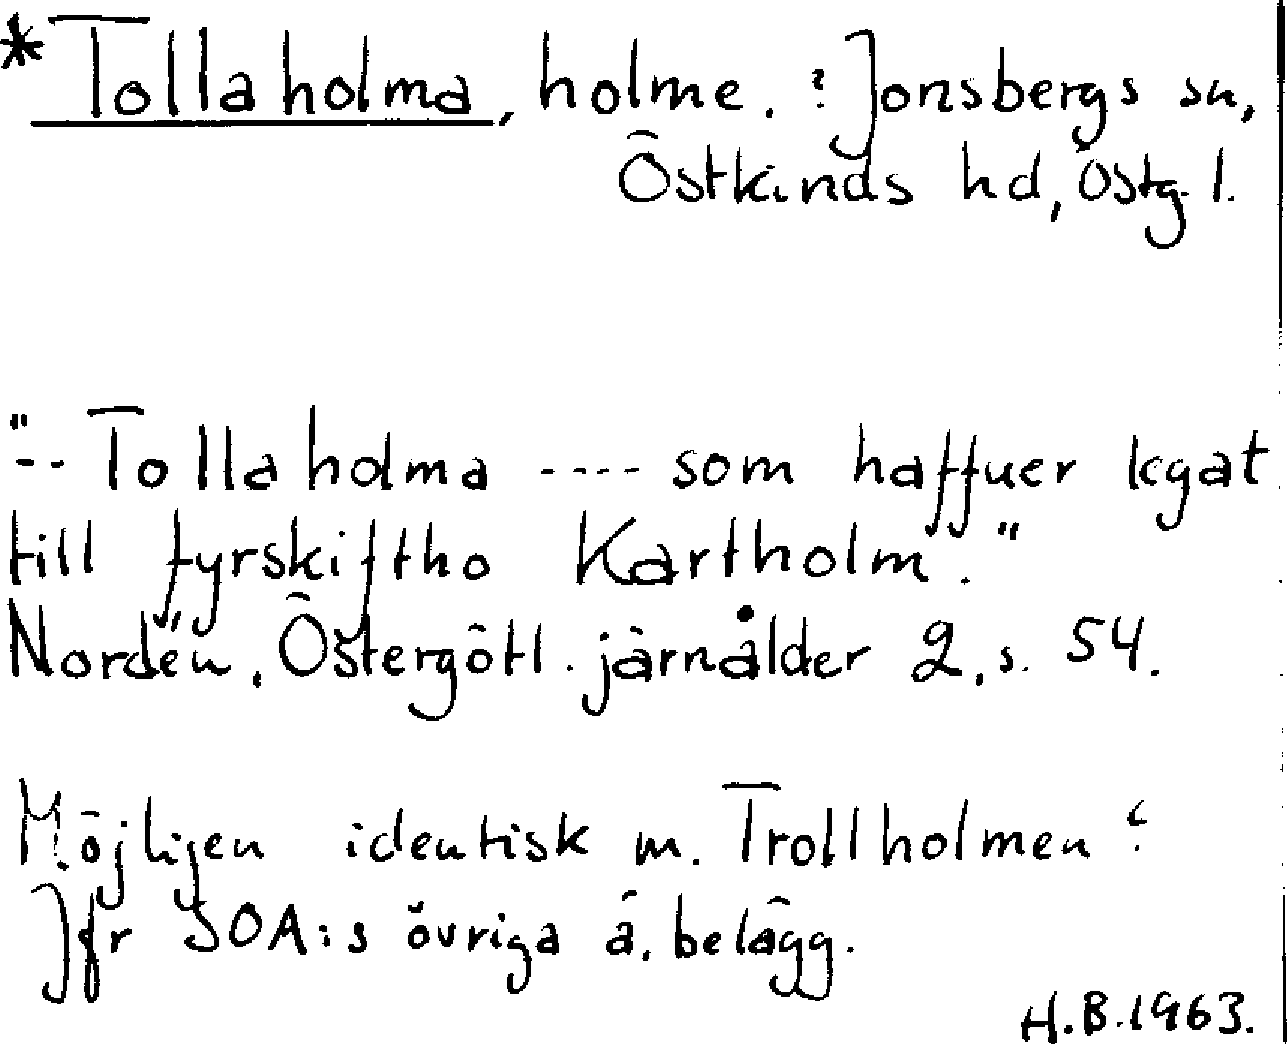 *Tollaholma, holme. ? Jonsbergs sn,
Östkinds hd, Östg l.
"-- Tollaholma ---- som haffuer lgat
till fyrskiftho Kartholm."
Nordén, Östergötl. järnålder 2, s. 54.
Möjligen identisk m. Trollholmen?
Jfr SOA:s övriga ä. belägg.
H.B. 1963.